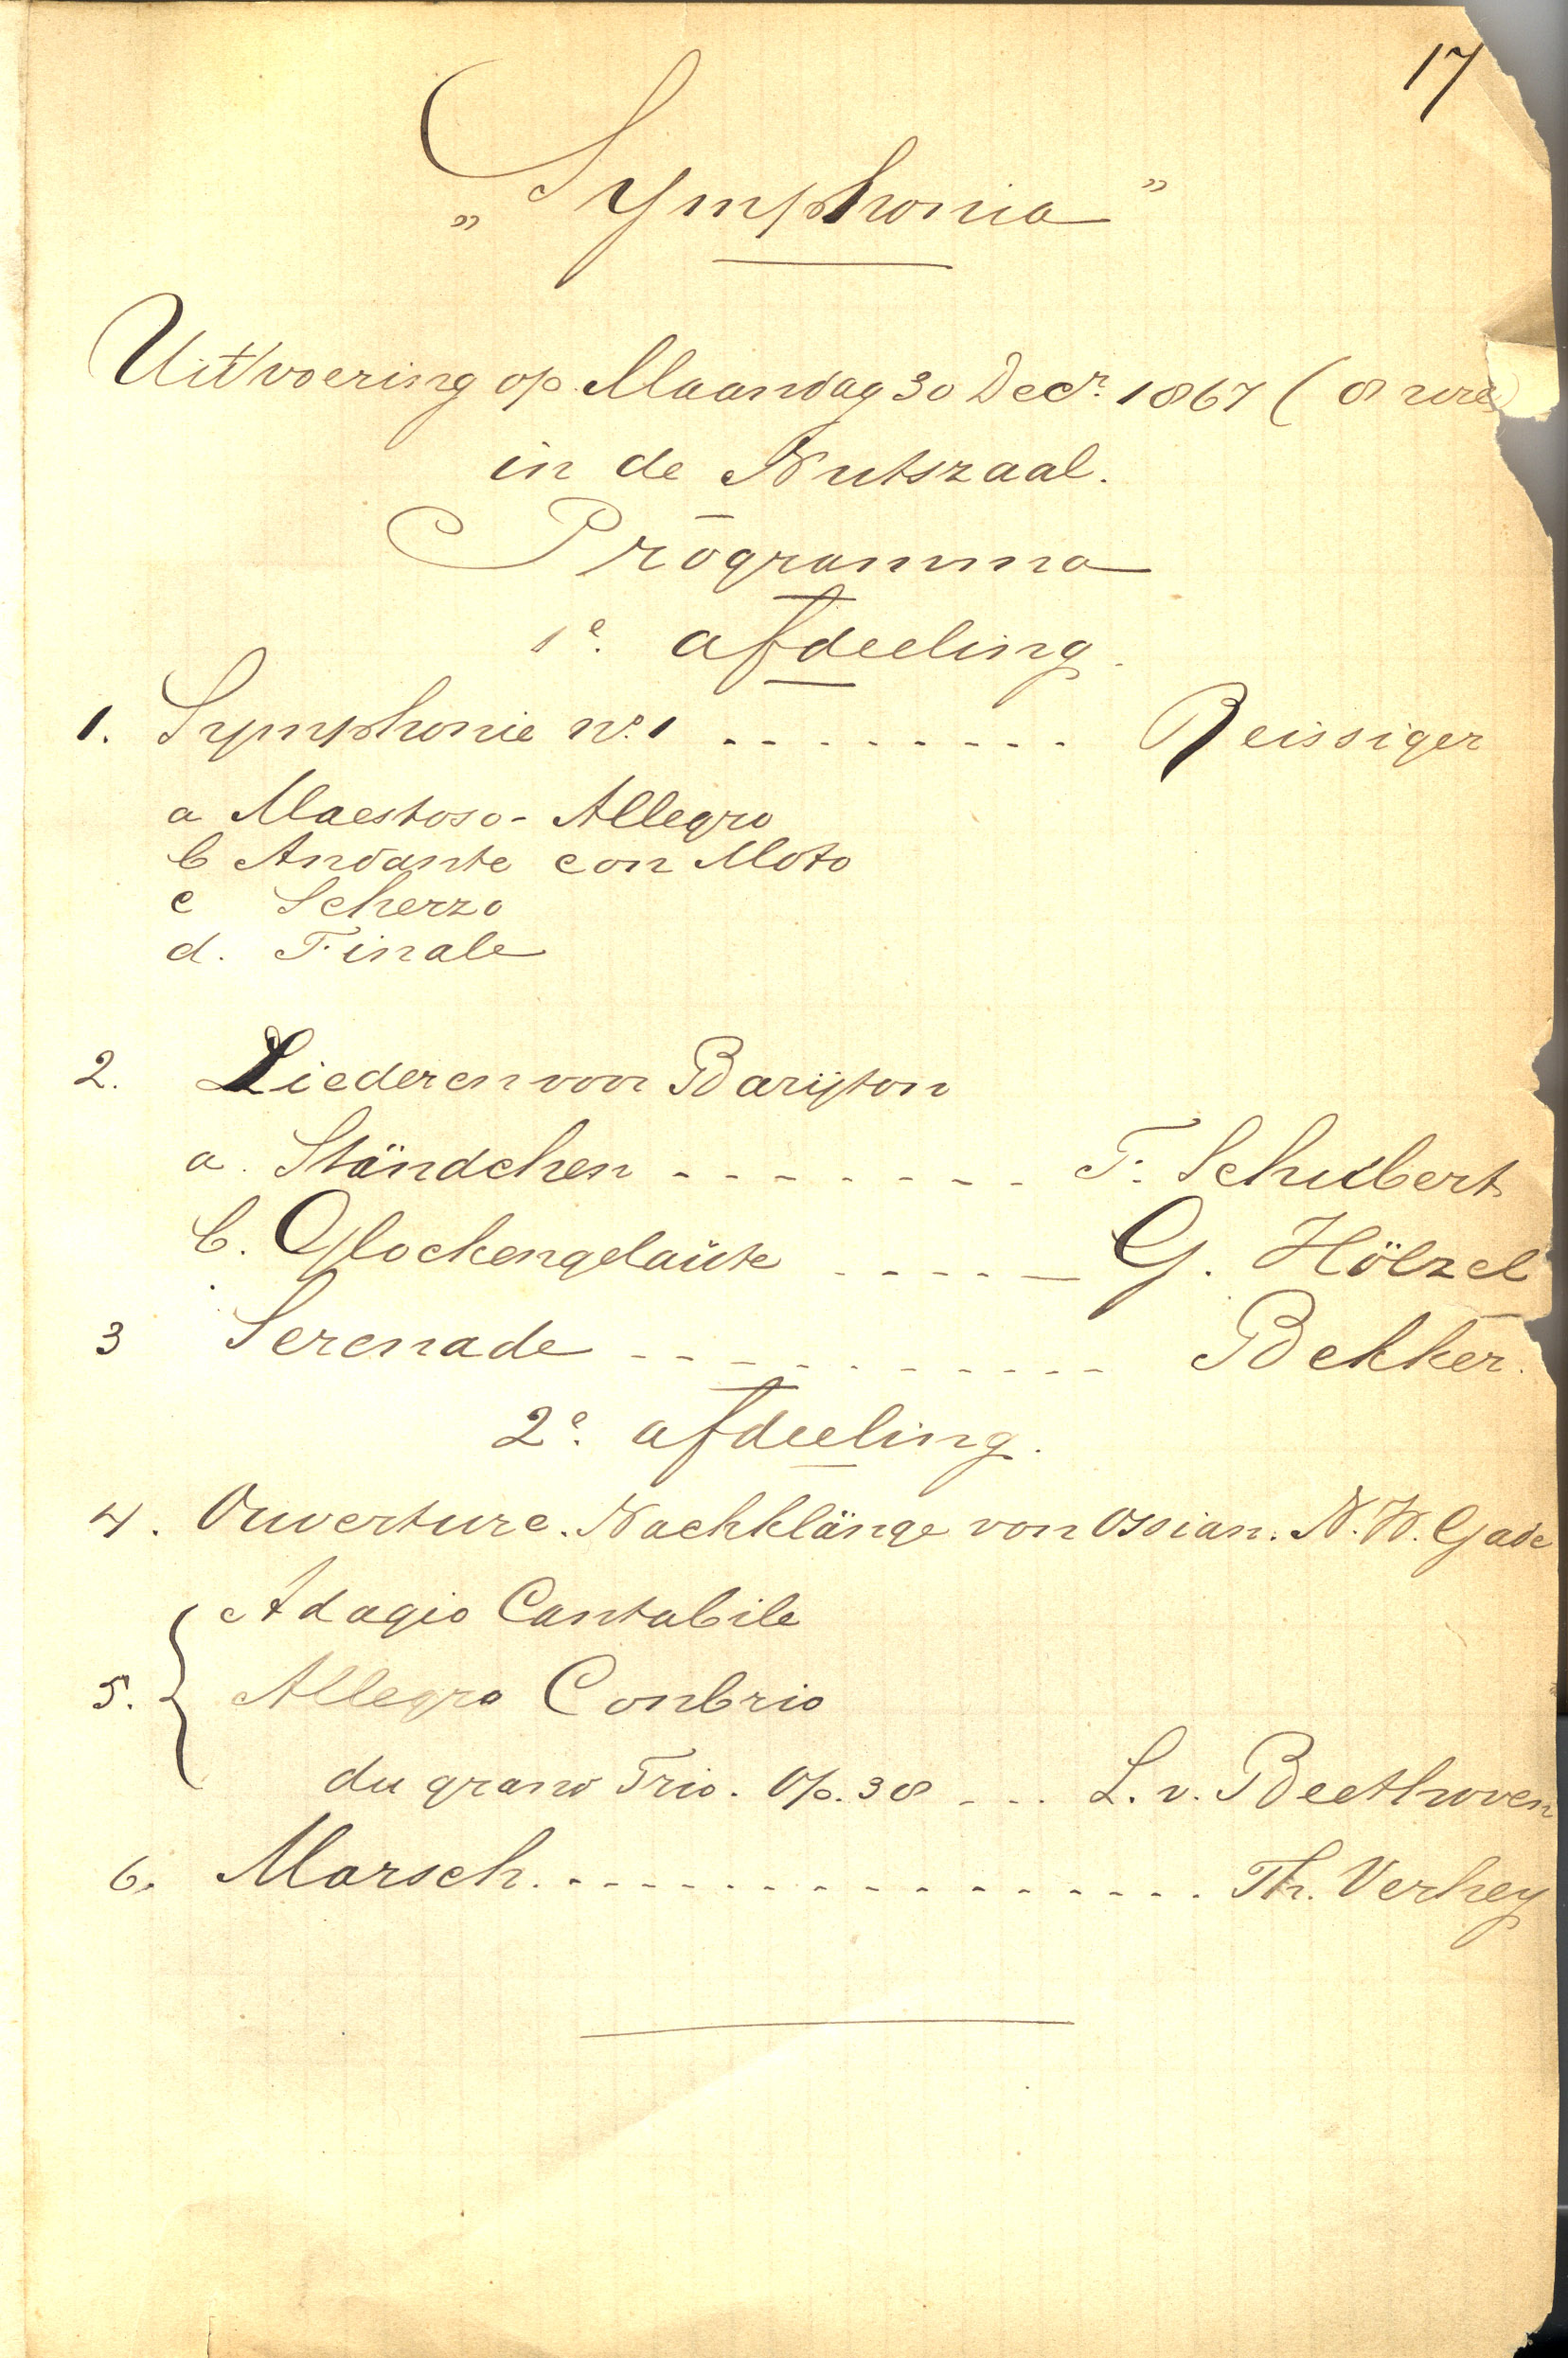 17
„Symphonia”
Uitvoering op Maandag 30 Decr. 1867 ( 8 ure)
in de Nutszaal.
Programma
1e. afdeeling.
1. Symphonie no. 1 - - - - - - - - - Reissiger
a Maestoso - Allegro
b Andante con Moto
c Scherzo
d. Finale
2. Liederen voor Barijton
a. Ständchen - - - - - - - - F. Schubert
b. Glockengelaüte - - - - - G. Hölzel
3 Serenade - - - - - - - - - - - Bekker.
2e. afdeeling.
4. Ouverture. Nachklänge von Ossian. N. W. Gade
Adagio Cantabile
5. { Allegro Conbrio
du grand Trio. Op. 38 - - - L. v. Beethoven
6. Marsch. - - - - - - - - - - - - - - - - - Th. Verhey